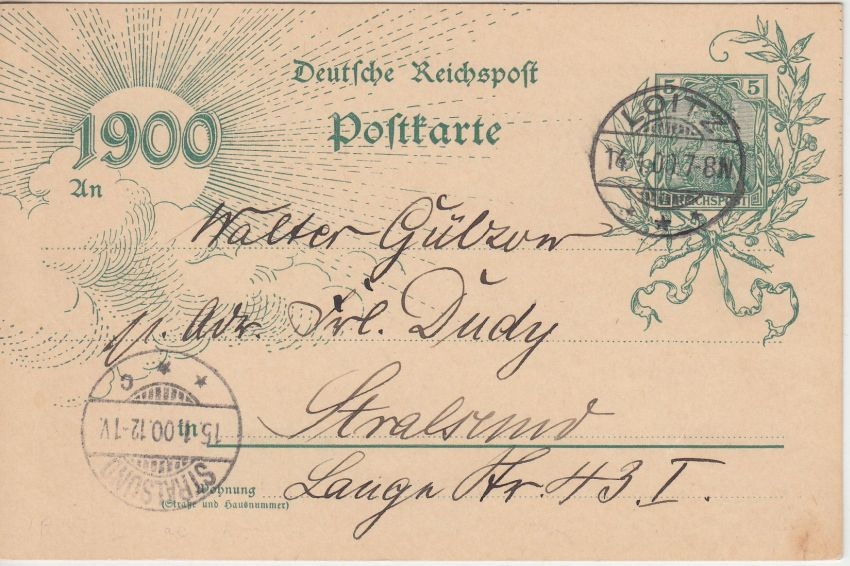 Deutsche Reichspost
Postkarte
1900
An
5 5
REICHSPOST
LOITZ
14.1.00.7-8N
Walter Gülzow
p. Adr. Frl. Dudy
in
Stralsund
Wohnung
(Straße und Hausnummer)
Lange Str. 43 I.
C
15.1.00.12-1V.
STRALSUND